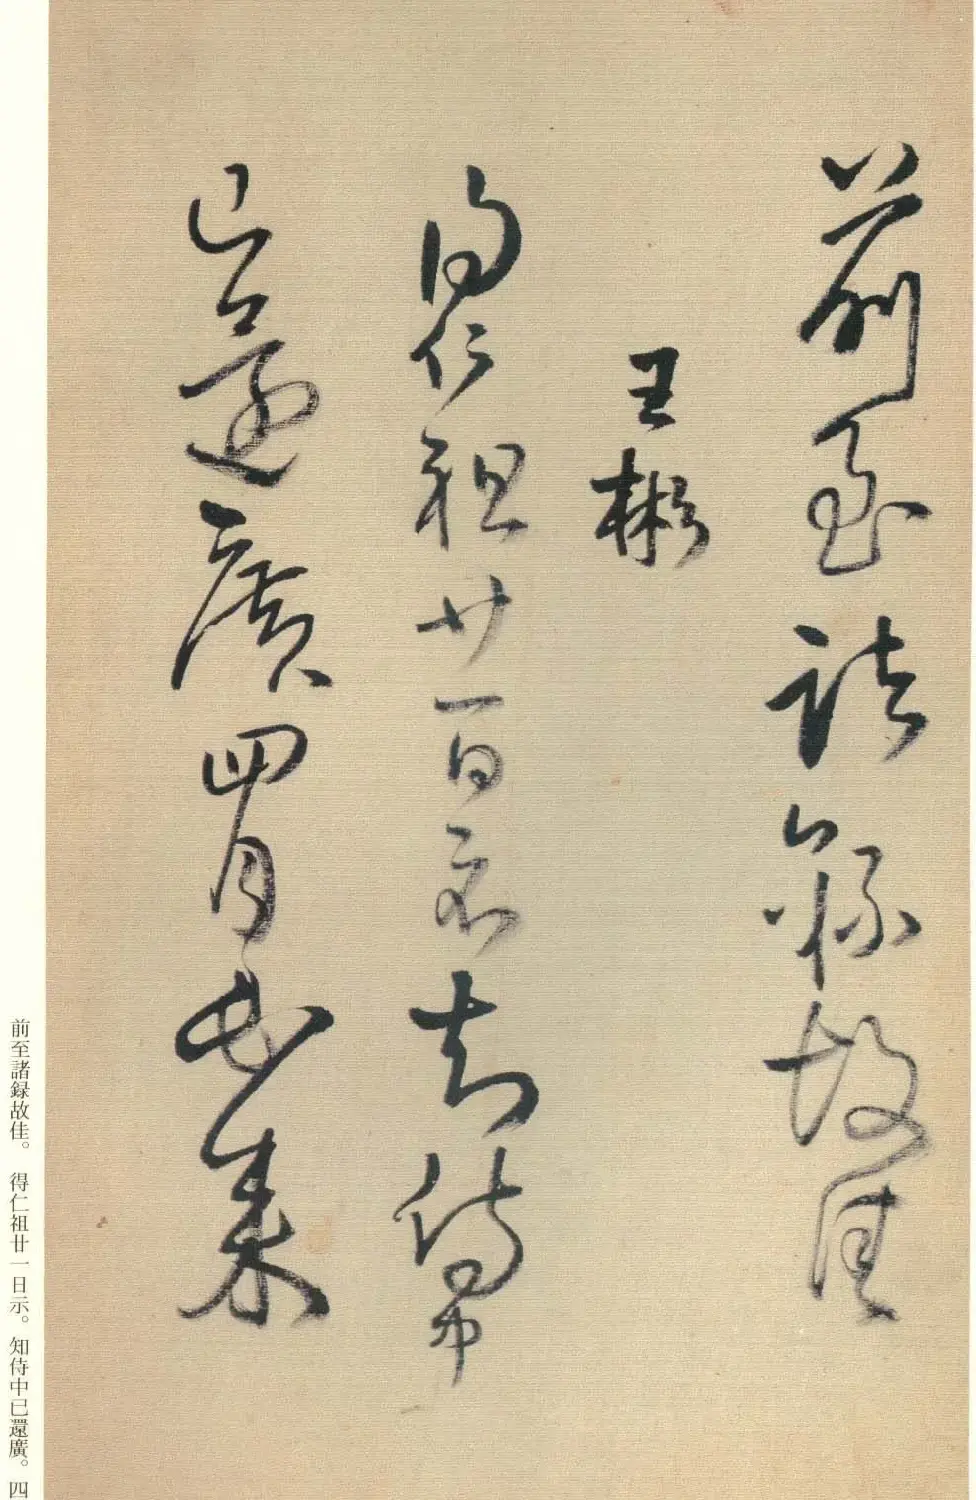 前至諸録故佳
王彬
得仁祖廿一日示知侍中
已還廣四月書來
前至諸録故佳。 得仁祖廿一日示。知侍中已還廣。四